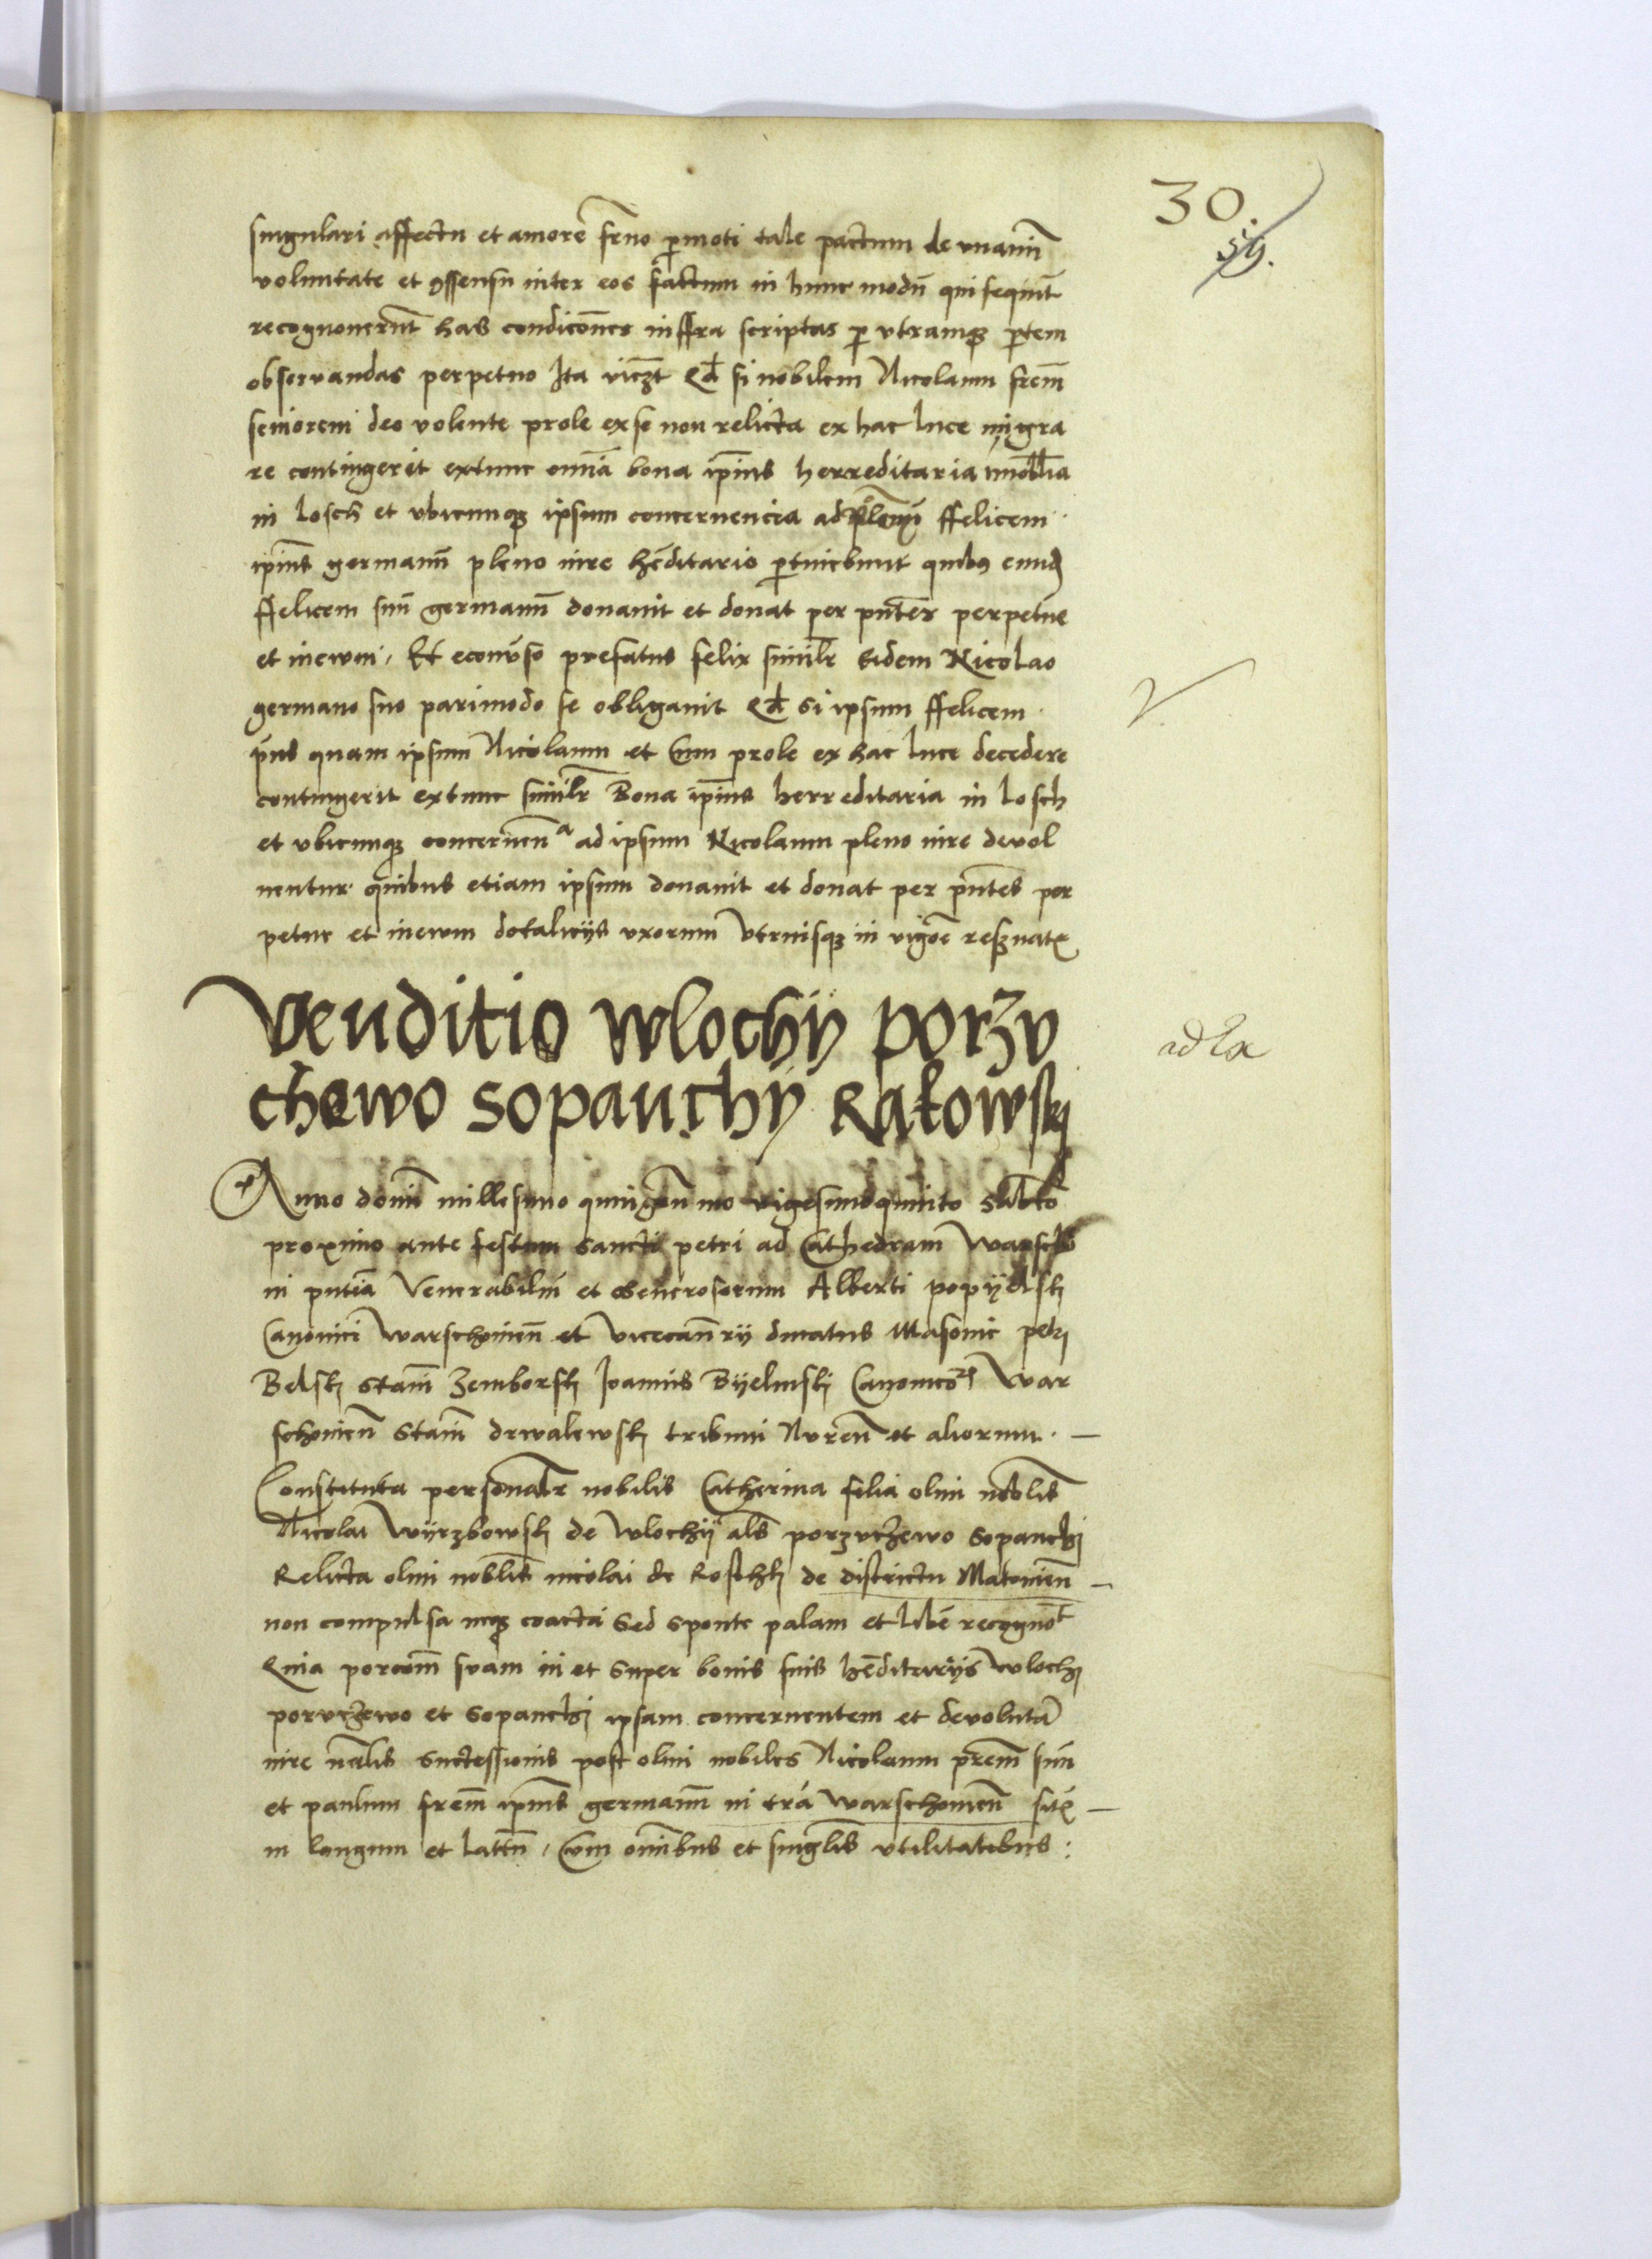 30.
59.
singulari affectu et amore frno pmoti tale pactum de vnanim
voluntate et 9ssensu inter eos factum in hunc modũ qui sequint
recognouerũt has condicões inffra scriptas p vtramqʒ ptem
observandas perpetuo Ita viczt Qd si nobilem Nicolaum frem
seniorem deo volente prole ex se non relicta ex hac luce migra
re contingerit extunc omia bona ipius herreditaria imobilia
in Losch et vbicunqʒ ipsum concernencia ad ffelicem
ipius germanũ pleno iure hẽditario ptinebunt quibꝫ eund
ffelicem suũ germanũ donauit et donat per pñtes perpetue
et in ewm. Et econũso prefatus felix similr eidem Nicolao
germano suo parimodo se obligauit Qd si ipsum ffelicem
prius quam ipsum Nicolaum et cum prole ex hac luce decedere
contingerit extunc similr Bona ipius herreditaria in Losch
et vbicunqʒ concernen̄a ad ipsum Nicolaum pleno iure devol
uentur quibus etiam ipsum donauit et donat per pñtes per
petue et in ewm dotalicijs vxorum vtriusqʒ in vigore reſuatꝭ
Venditio wlochÿ porzv
chewo sopauchÿ Ratowskj
ad
Anno domi millesimo quingen̄mo vigesimoquinto Sabbto
proximo ante festum sancti petri ad Cathedram Warsch
in pñtia Venerabiliũ et Generosorum Alberti popyelsk
Canonici Warschouien̄ et vicecan̄rij ducatus Masouie petri
Belsk Stani Zemborsk Joannis Byelinski Canonicoꝝ War
schouien̄ Stani drwalewsk tribuni Nuren̄ et aliorum.
Constituta personalr nobilis Catherina filia olim nobilis
Nicolai Wyrzbowsk de Wlochÿ als porzvchewo Sopanchi
Relicta olim nobilis nicolai de Roschk de districtu Makouien̄
non compulsa neqʒ coacta Sed sponte palam et libe recognot
Quia porcom̄ svam in et super bonis suis hẽditarijs Wloch
porvchewo et Sopanchi ipsam concernentem et devolutã
iure nalis successionis post olim nobiles Nicolaum prem suũ
et paulum frem ipius germanũ in tra warschouien̄ sitꝭ
in longum et lattũ, Cum omibus et singlis vtilitatibus: